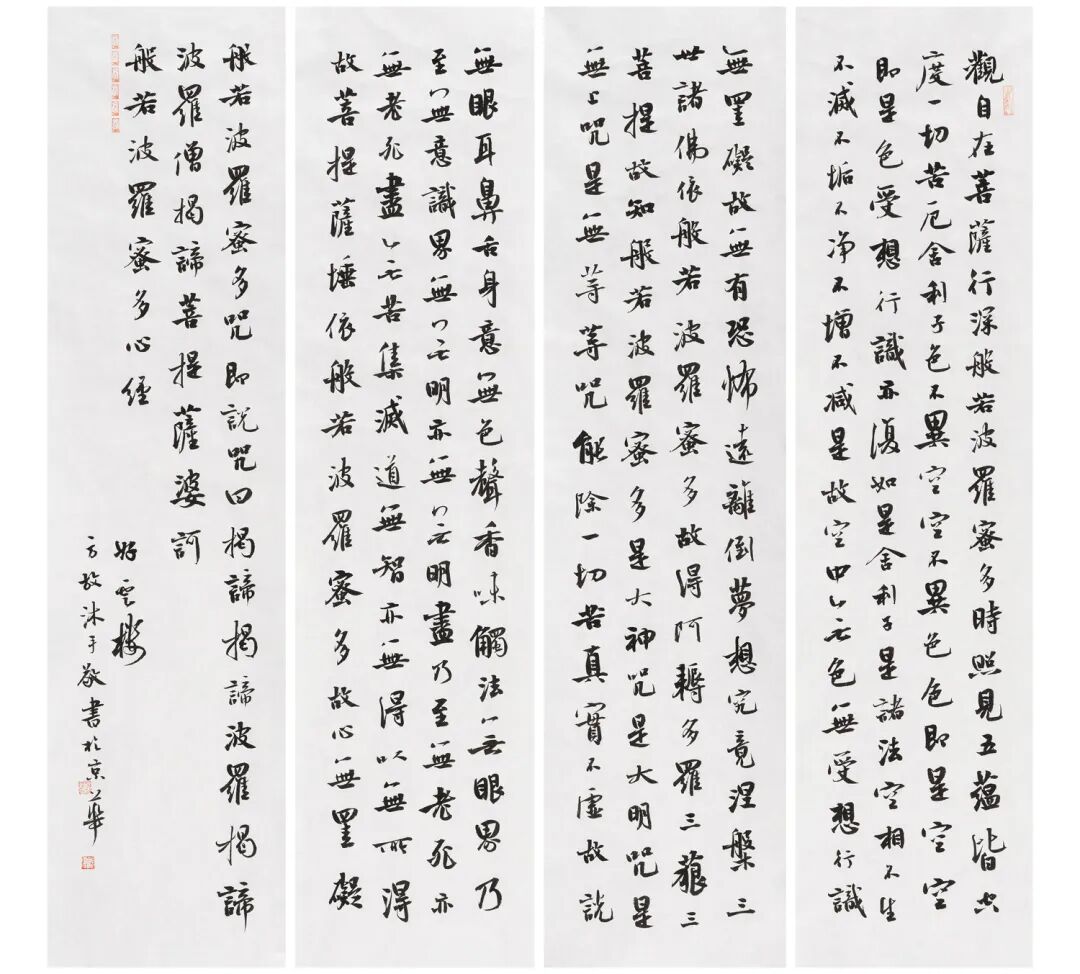 觀自在菩薩行深般若波羅蜜多時照見五蘊皆空
度一切苦厄舍利子色不異空空不異色色即是空空
即是色受想行識亦復如是舍利子是諸法空相不生
不滅不垢不净不增不减是故空中无色無受想行識
無罣礙故無有恐怖遠離倒夢想究竟涅槃三
世諸佛依般若波羅蜜多故得阿耨多羅三藐三
菩提故知般若波羅蜜多是大神咒是大明咒是
無上咒是無等等咒能除一切苦真實不虛故說
無眼耳鼻舌身意無色聲香味觸法无眼界乃
至無意識界無无明亦無无明盡乃至無老死亦
無老死盡无苦集滅道無智亦無得以無所得
故菩提薩埵依般若波羅蜜多故心無罣礙
般若波羅蜜多咒即說咒曰揭諦揭諦波羅揭諦
波羅僧揭諦菩提薩婆訶
般若波羅蜜多心經
好雲樓
方沐手敬書於京華